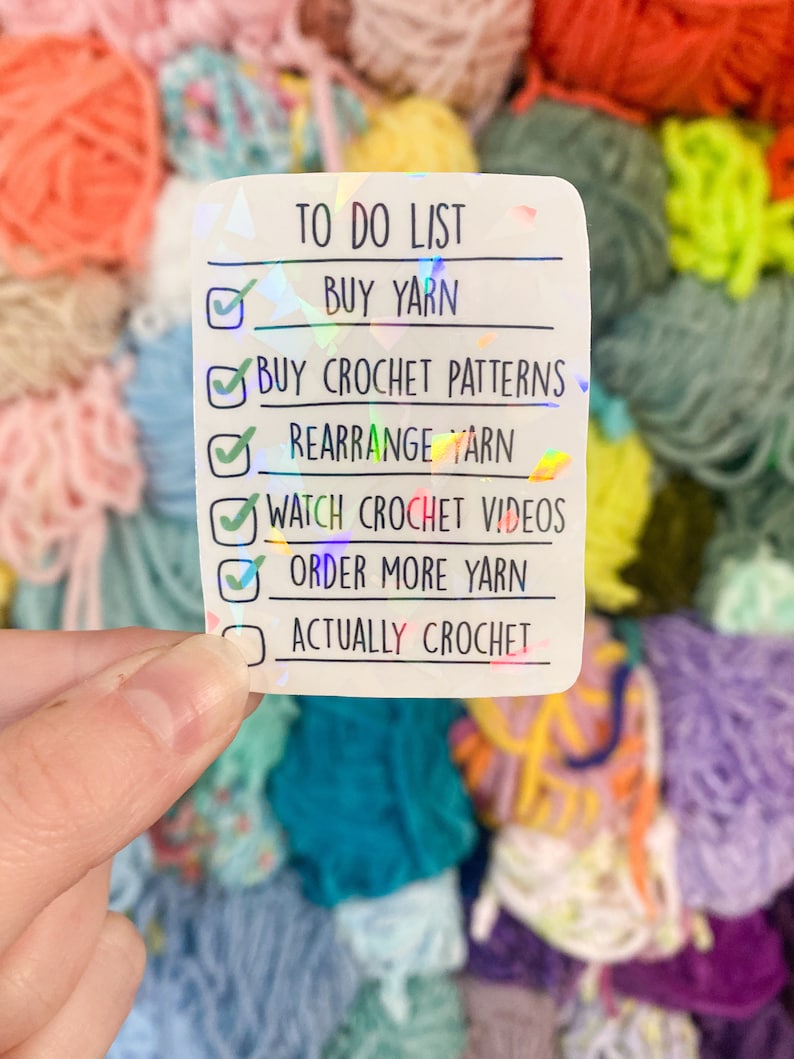 TO DO LIST
BUY YARN
BUY CROCHET PATTERNS
REARRANGE YARN
WATCH CROCHET VIDEOS
ORDER MORE YARN
ACTUALLY CROCHET